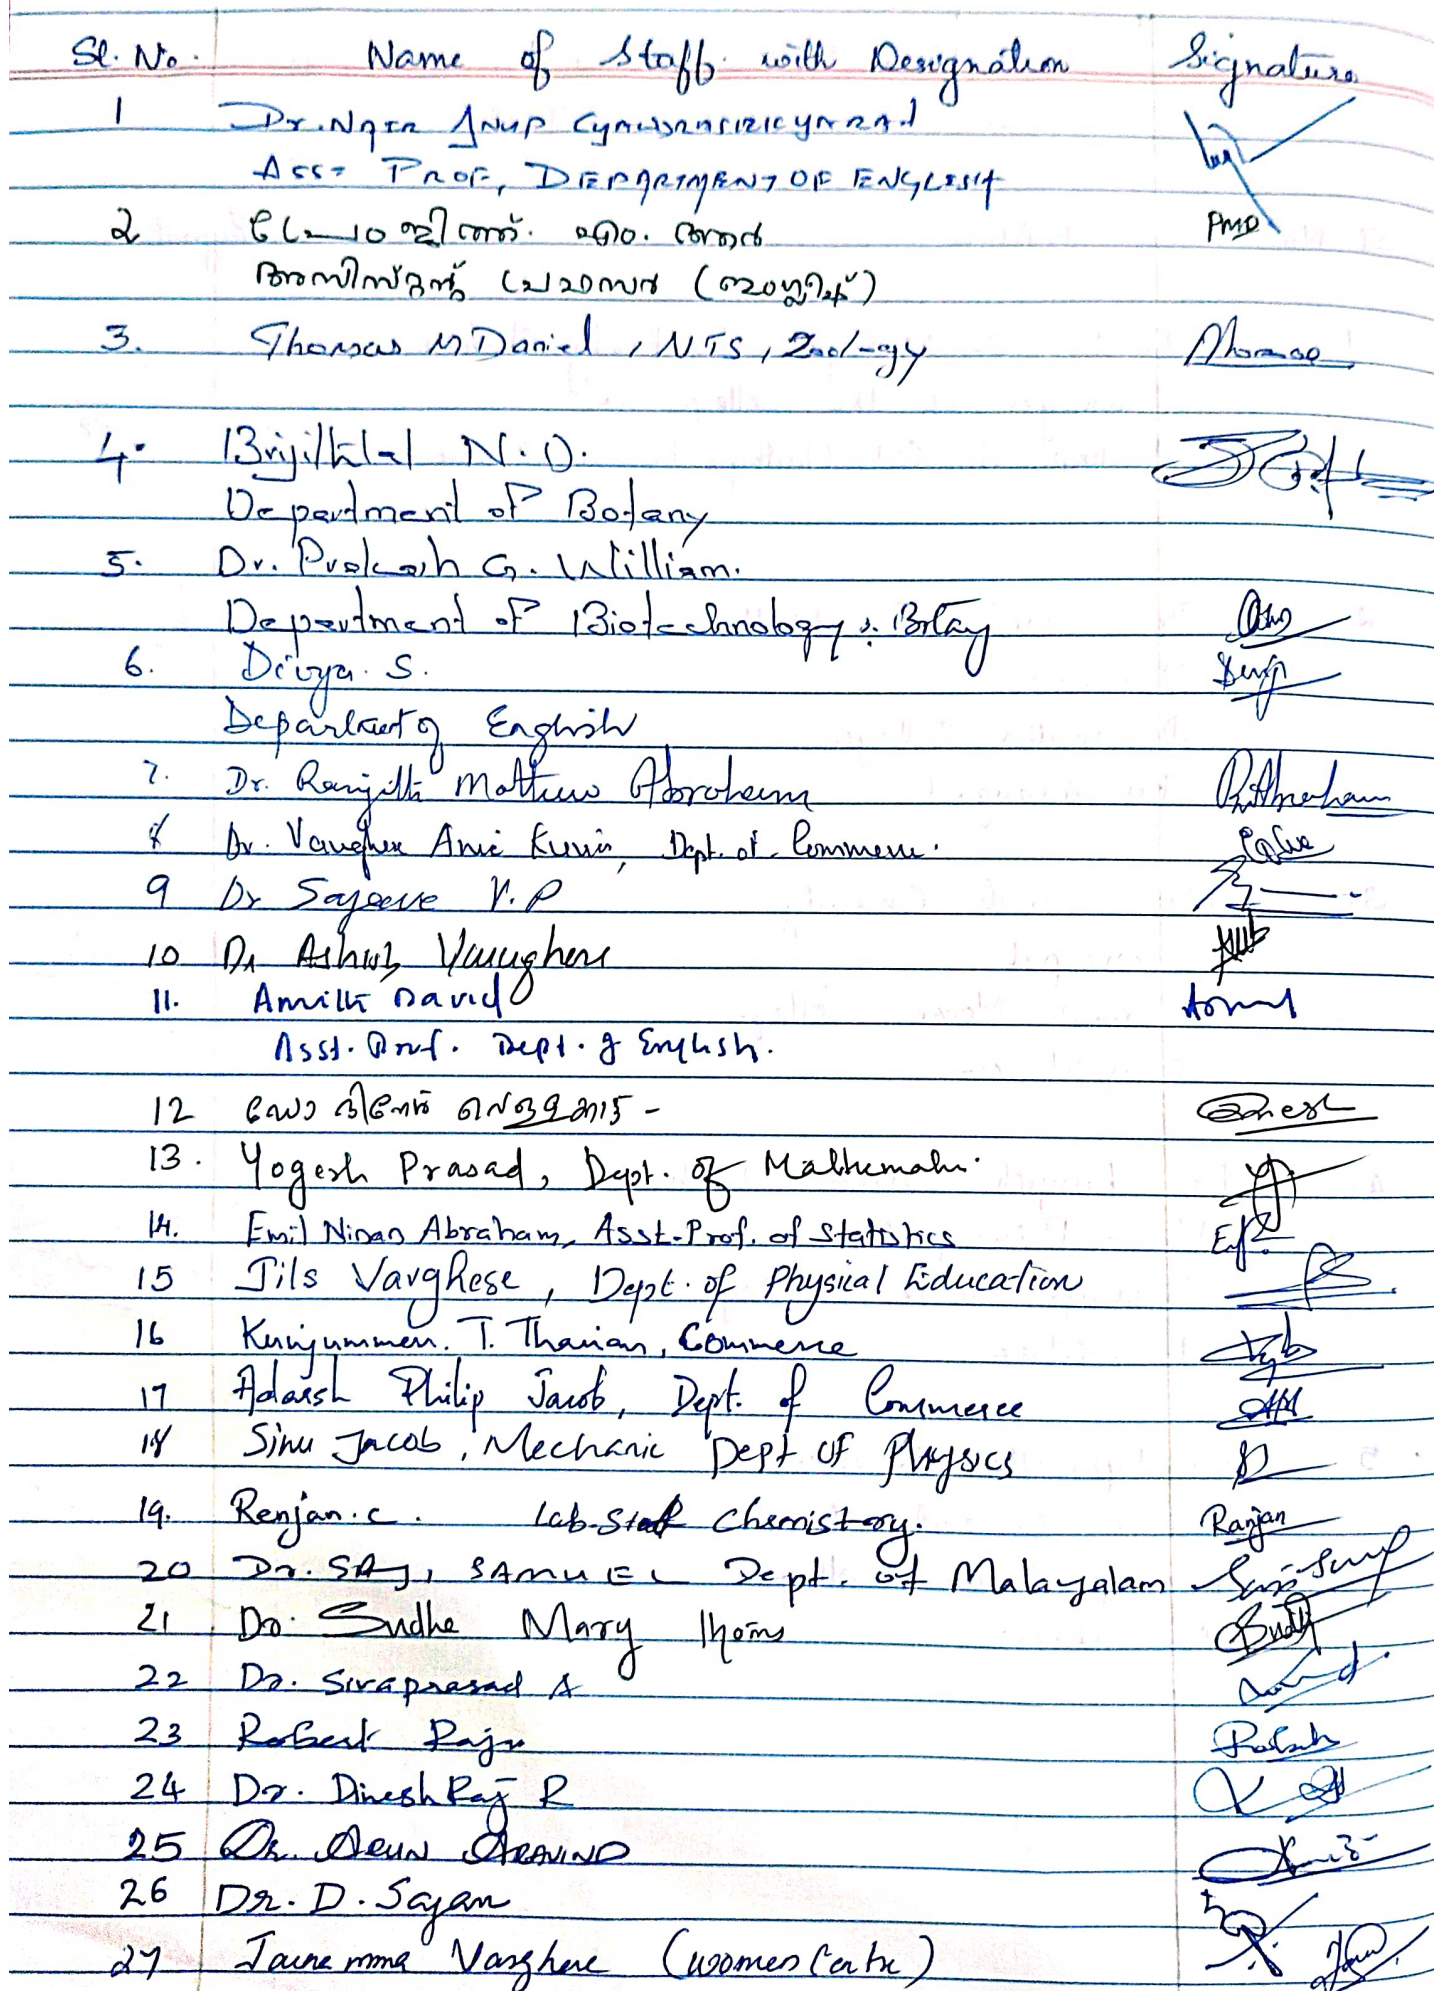 Sl. No. Name of Staff with Designation Signature
1 Dr. Nair Anup
Asst Prof, Department of English
2 എം.
അസിസ്റ്റന്റ് പ്രൊഫസർ (ഇംഗ്ലീഷ്)
3. Thomas M Daniel, NTS, Zoology
4. Brijithlal N.D.
Department of Botany
5. Dr. Prakash G. William.
Department of Biotechnology & Botany
6. Divya. S.
Department of English
7. Dr. Renjith Mathew Abraham RAbraham
8 Dr. Varughese Kurian, Dept. of Commerce.
9 Dr Sajeeve V.P
10 Dr Varughese
11. Amith David
Asst. Prof. Dept. of English.
12 ഡോ
13. Yogesh Prasad, Dept. of Mathematics.
14. Emil Ninan Abraham, Asst. Prof. of Statistics
15 Jils Varghese, Dept. of Physical Education
16 Kunjummen. T. Tharian, Commerce
17 Adarsh Philip Jacob, Dept. of Commerce
18 Sinu Jacob, Mechanic Dept of Physics
19. Renjan. C. Lab-Staff Chemistry. Ranjan
20 Dr. SAJI SAMUEL Dept. of Malayalam
21 Dr. Sudha Mary Thomas
22 Dr. Sivaprasad A
23 Robert Raju
24 Dr. Dinesh Raj R
25 Dr. Arun Aravind
26 Dr. D. Sajan
27 Varghese (Women Centre)